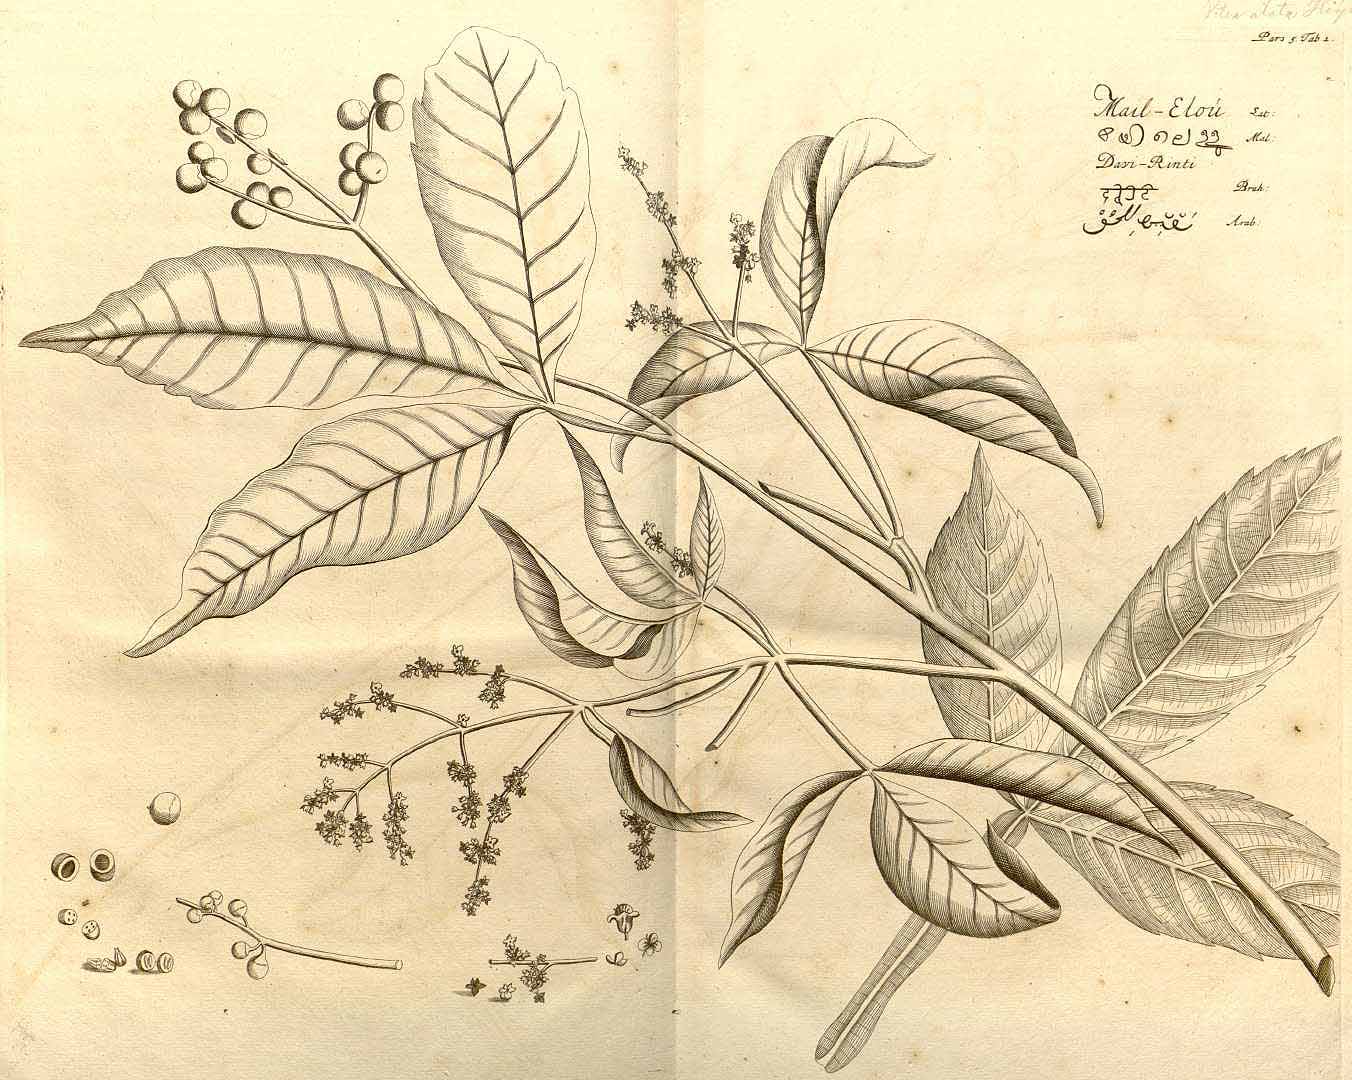 Vitex alata Hey
Pars 5. Tab 1.
Mail-Eloú Lat:
മയിലെള്ളൂ Mal:
Dasi-Rinti
Brah:
Arab: